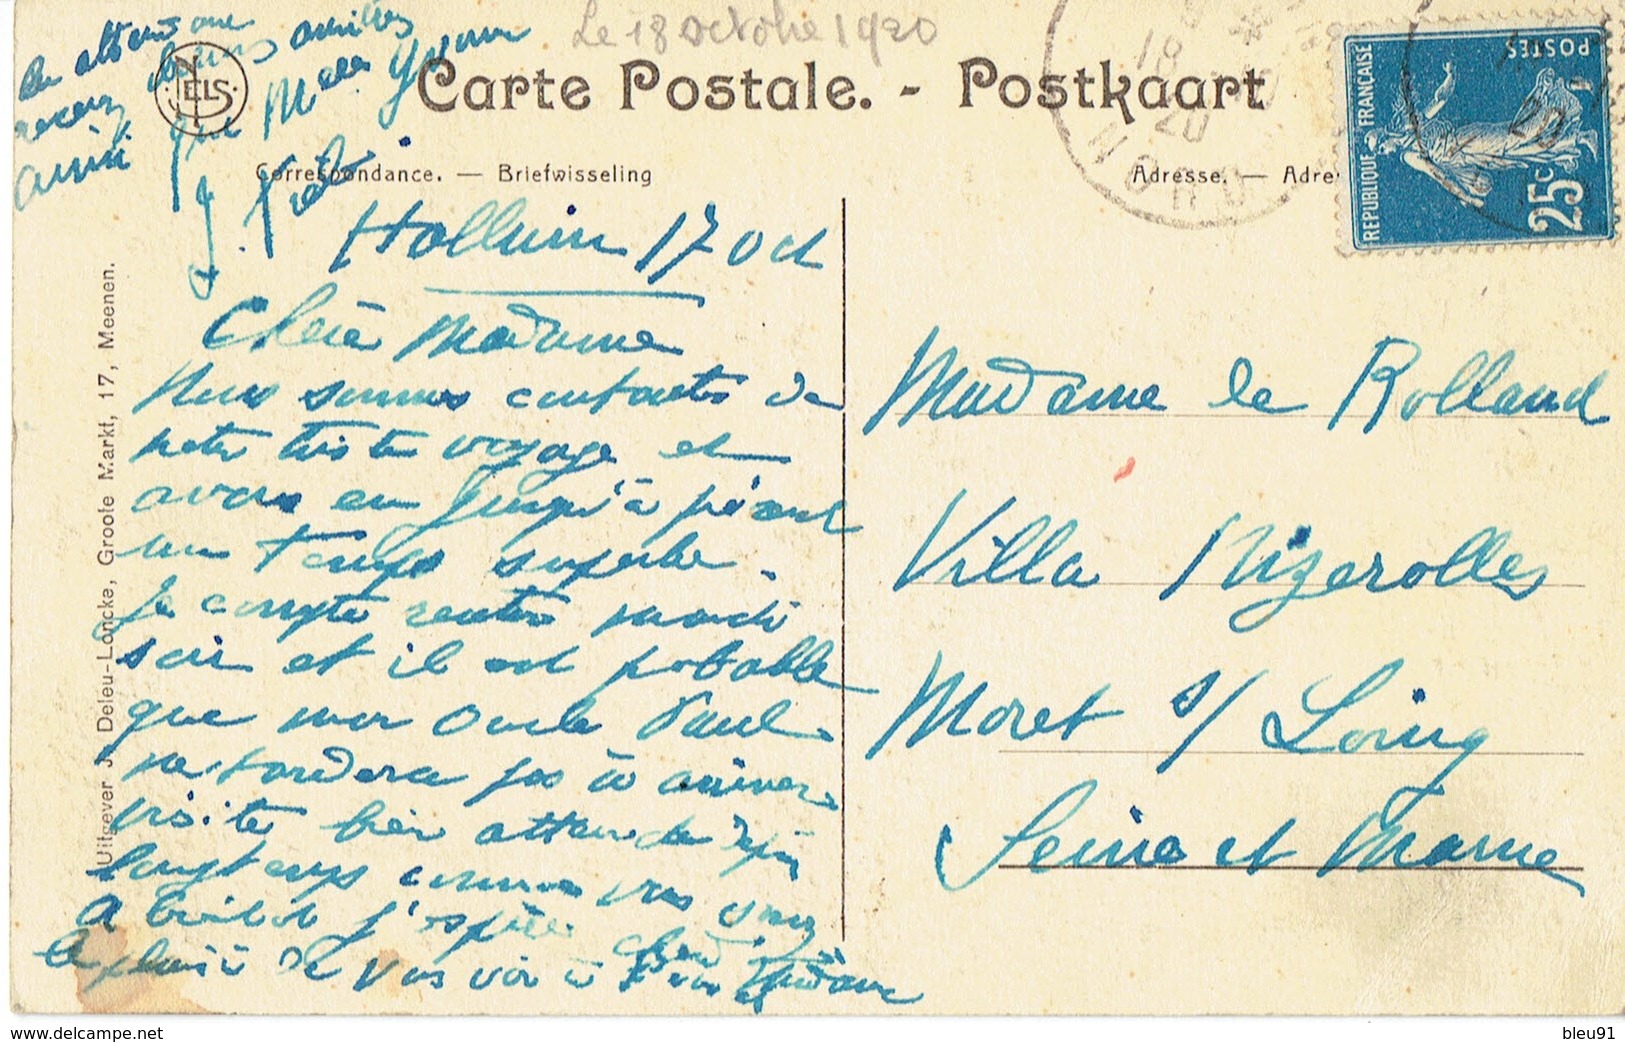 Le 18 octobre 1920
Carte Postale. - Postkaart
NELS
Correspondance. — Briefwisseling
Adresse. — Adre
18
20
NORD
POSTES
REPUBLIQUE FRANÇAISE
25c
Uitgever J. Deleu-Loncke, Groote Markt, 17, Meenen.
Halluin 17 Oct
Chère Madame
Nous sommes contentes de
notre triste voyage et
avons eu jusqu'à présent
un temps superbe.
Je compte rentrer mardi
soir et il est probable
que mon Oncle Paul
ne tardera pas à arriver
visite bien attendue depuis
longtemps comme vous savez
A bientôt j'espère chère Madame
le plaisir de vous voir à
En attendant
recevez bons amitiés
ainsi que Melle Yvonne
Madame le Rolland
Villa Nizerolles
Moret s/ Loing
Seine et Marne
bleu91